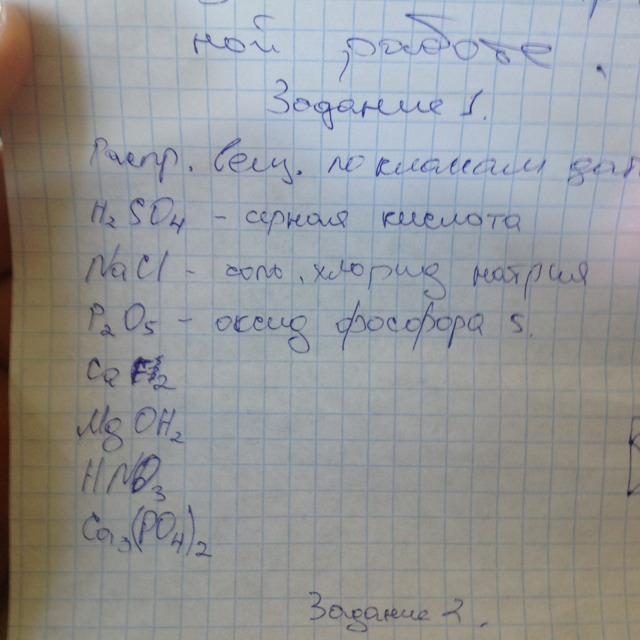 ной работе.
Задание 1.
Распр. вещ. по классам дат
H₂SO₄ - серная кислота
NaCl - соль, хлорид натрия
P₂O₅ - оксид фосфора 5.
CaF₂
MgOH₂
HNO₃
Ca₃(PO₄)₂
Задание 2.